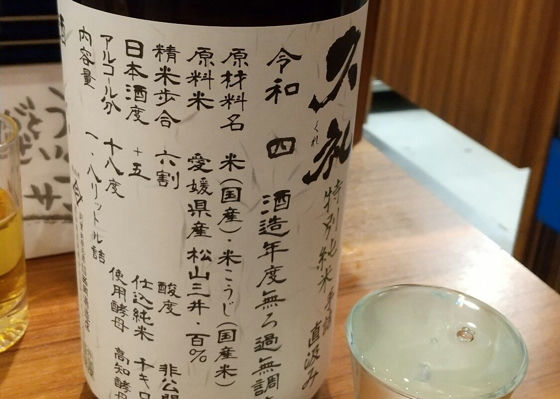 久礼
くれ
特別純米 直汲み
令和四酒造年度無ろ過無調
原材料名 米(国産)・米こうじ(国産米)
原料米 愛媛県産松山三井・百%
精米歩合 六割
酸度 非公開
日本酒度 +五
仕込純米 千キロ
アルコール分 十八度
使用酵母 高知酵母
内容量 一・八リットル詰